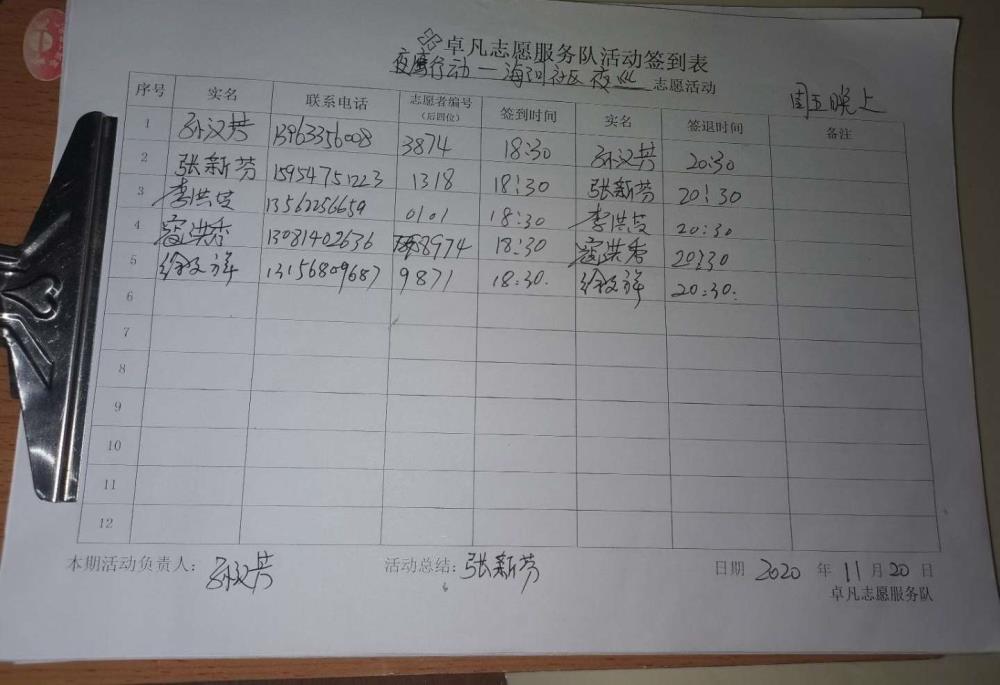 卓凡志愿服务队活动签到表
夜鹰行动一海河社区夜巡 志愿活动
周五晚上
序号 实名 联系电话 志愿者编号(后四位) 签到时间 实名 签退时间 备注
1 孙汉芬 13963356008 3874 18:30 孙汉芬 20:30
2 张新芬 15954751223 1318 18:30 张新芬 20:30
3 李洪 13562256659 0101 18:30 李洪 20:30
4 寇洪秀 13081402636 8974 18:30 寇洪秀 20:30
5 徐 祥 13156809687 9871 18:30. 徐 祥 20:30.
6
7
8
9
10
11
12
本期活动负责人: 孙汉芬 活动总结: 张新芬 日期 2020 年 11 月 20 日
卓凡志愿服务队